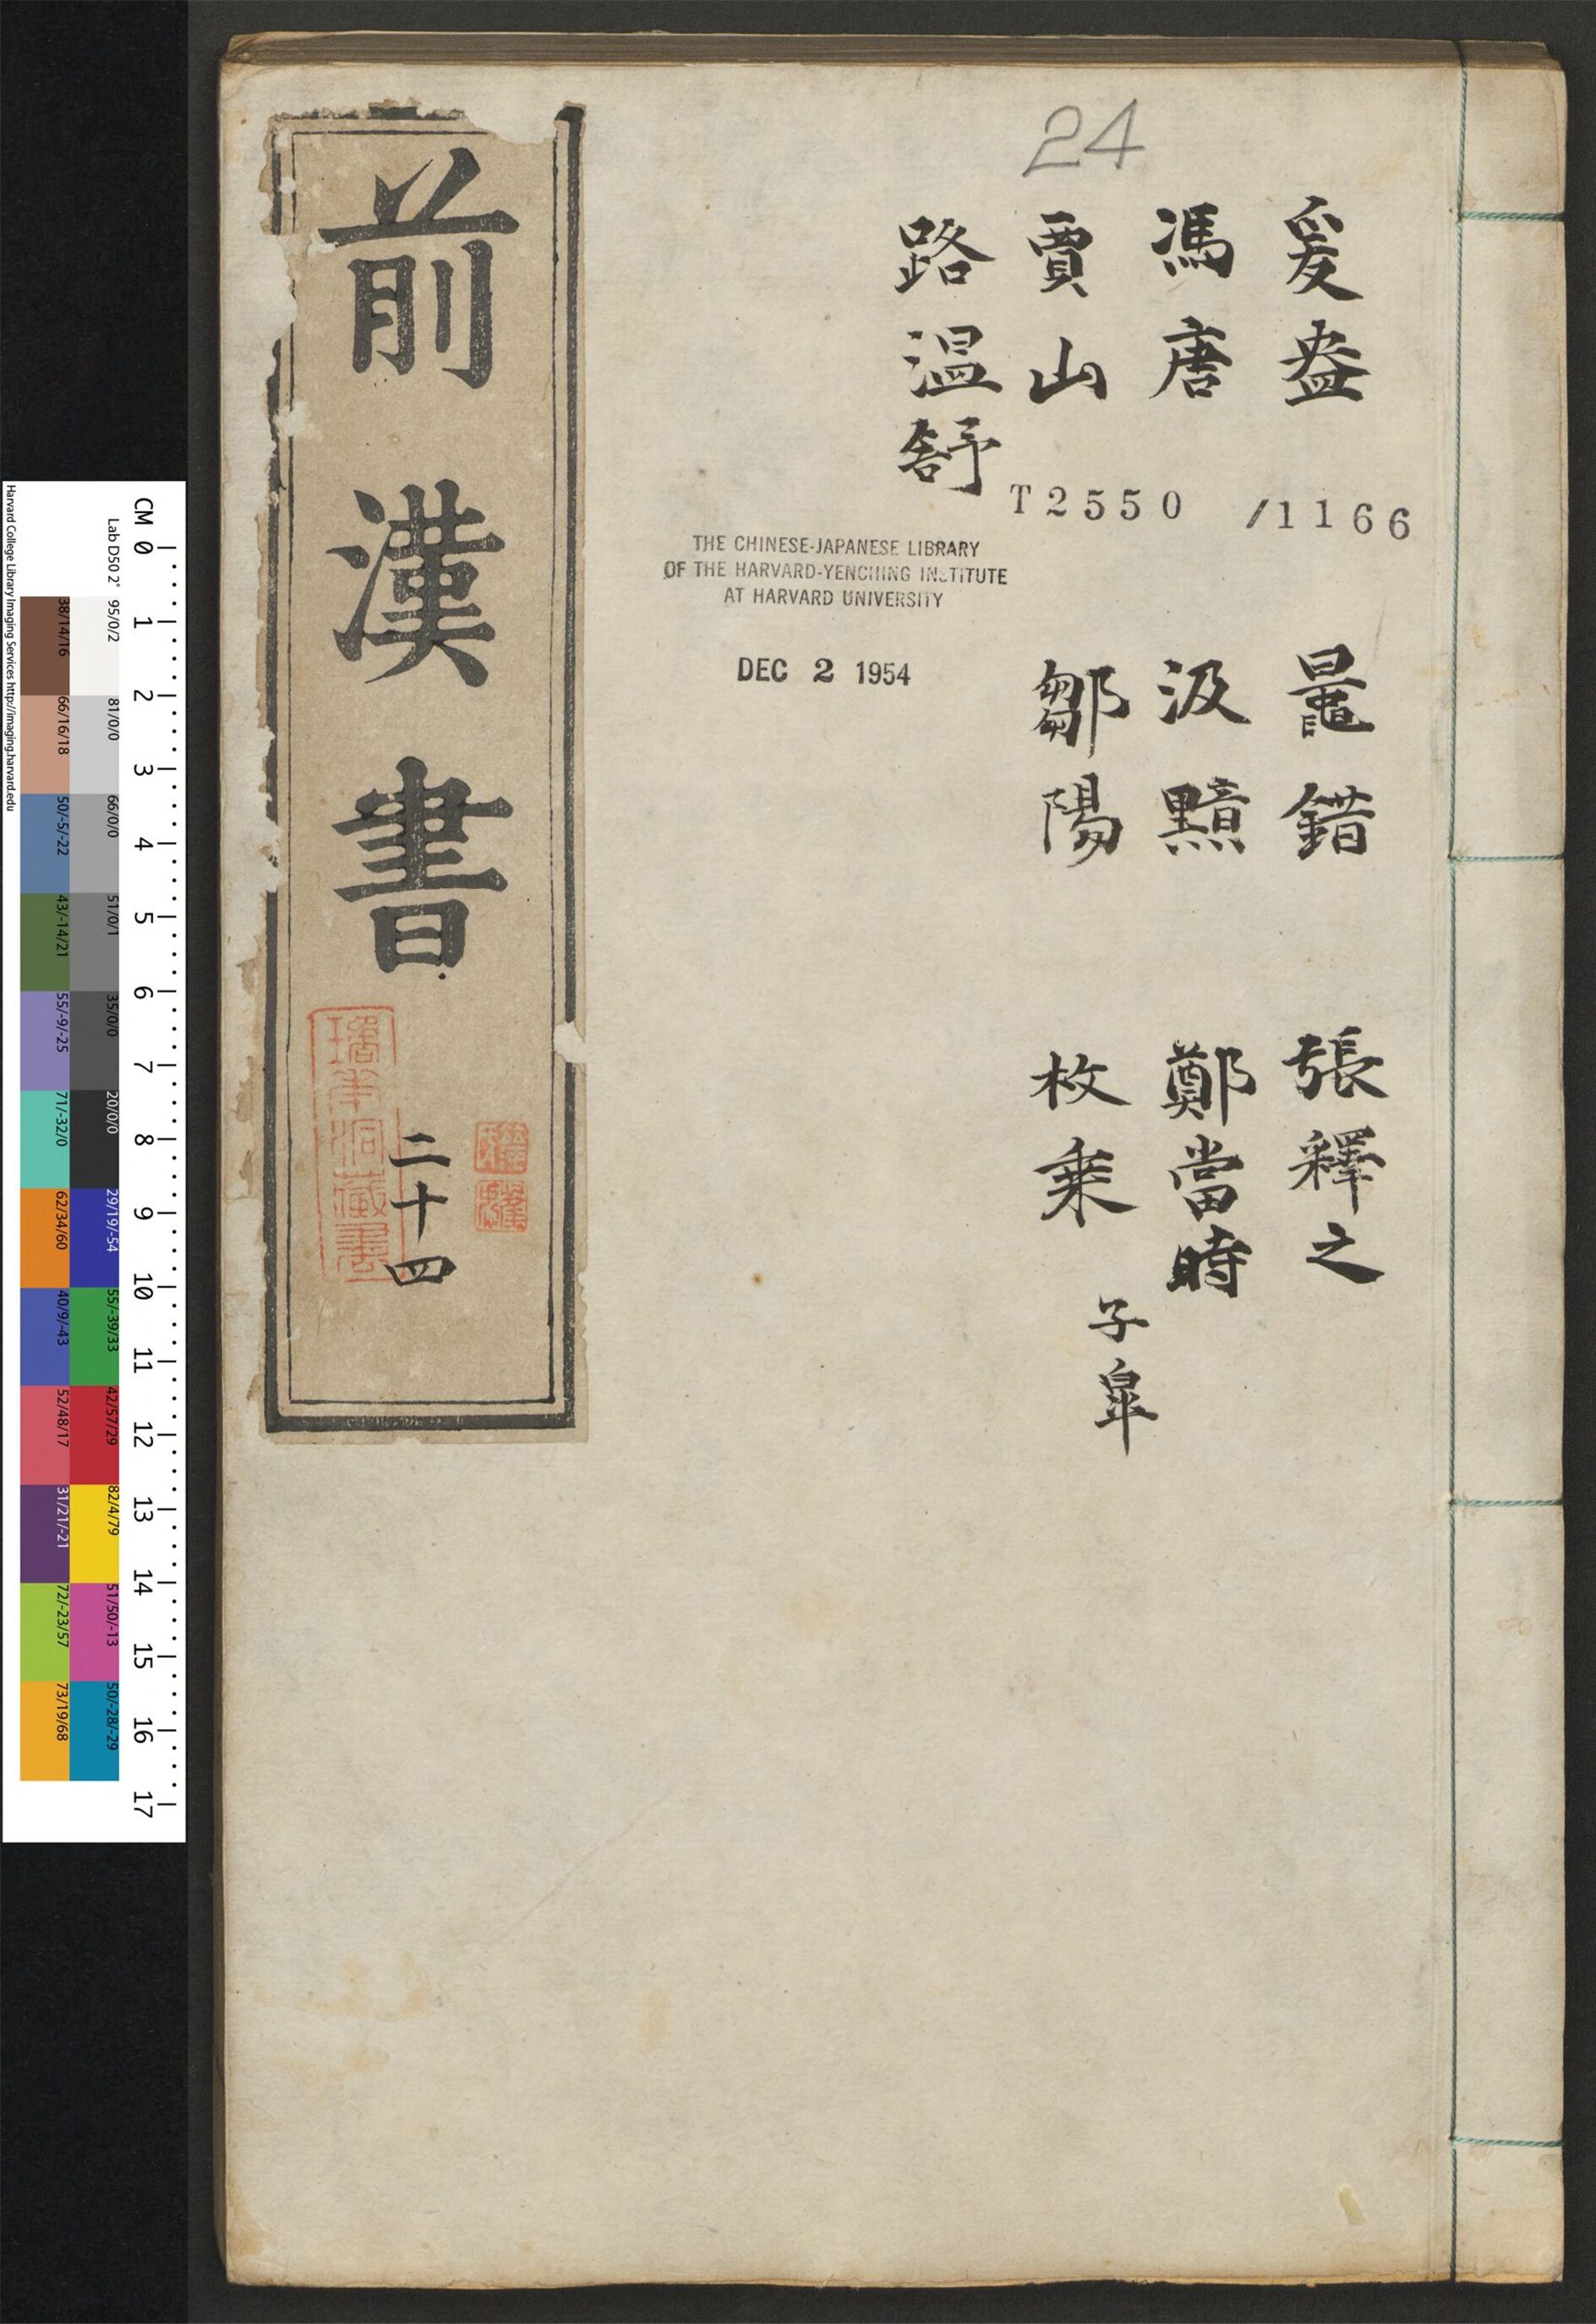 24
爰盎 鼂錯 張釋之
馮唐 汲黯 鄭當時
賈山 鄒陽 枚乘 子皐
路溫舒
T2550 /1166
THE CHINESE-JAPANESE LIBRARY
OF THE HARVARD-YENCHING INSTITUTE
AT HARVARD UNIVERSITY
DEC 2 1954
前漢書
二十四
CM 0 1 2 3 4 5 6 7 8 9 10 11 12 13 14 15 16 17
Lab D50 2° 95/0/2 81/0/0 66/0/0 51/0/1 35/0/0 20/0/0 29/19/-54 55/-39/33 42/57/29 82/4/79 51/50/-13 50/-28/-29
38/14/16 66/16/18 50/-5/-22 43/-14/21 55/-9/-25 71/-32/0 62/34/60 40/9/-43 52/48/17 31/21/-21 72/-23/57 73/19/68
Harvard College Library Imaging Services http://imaging.harvard.edu